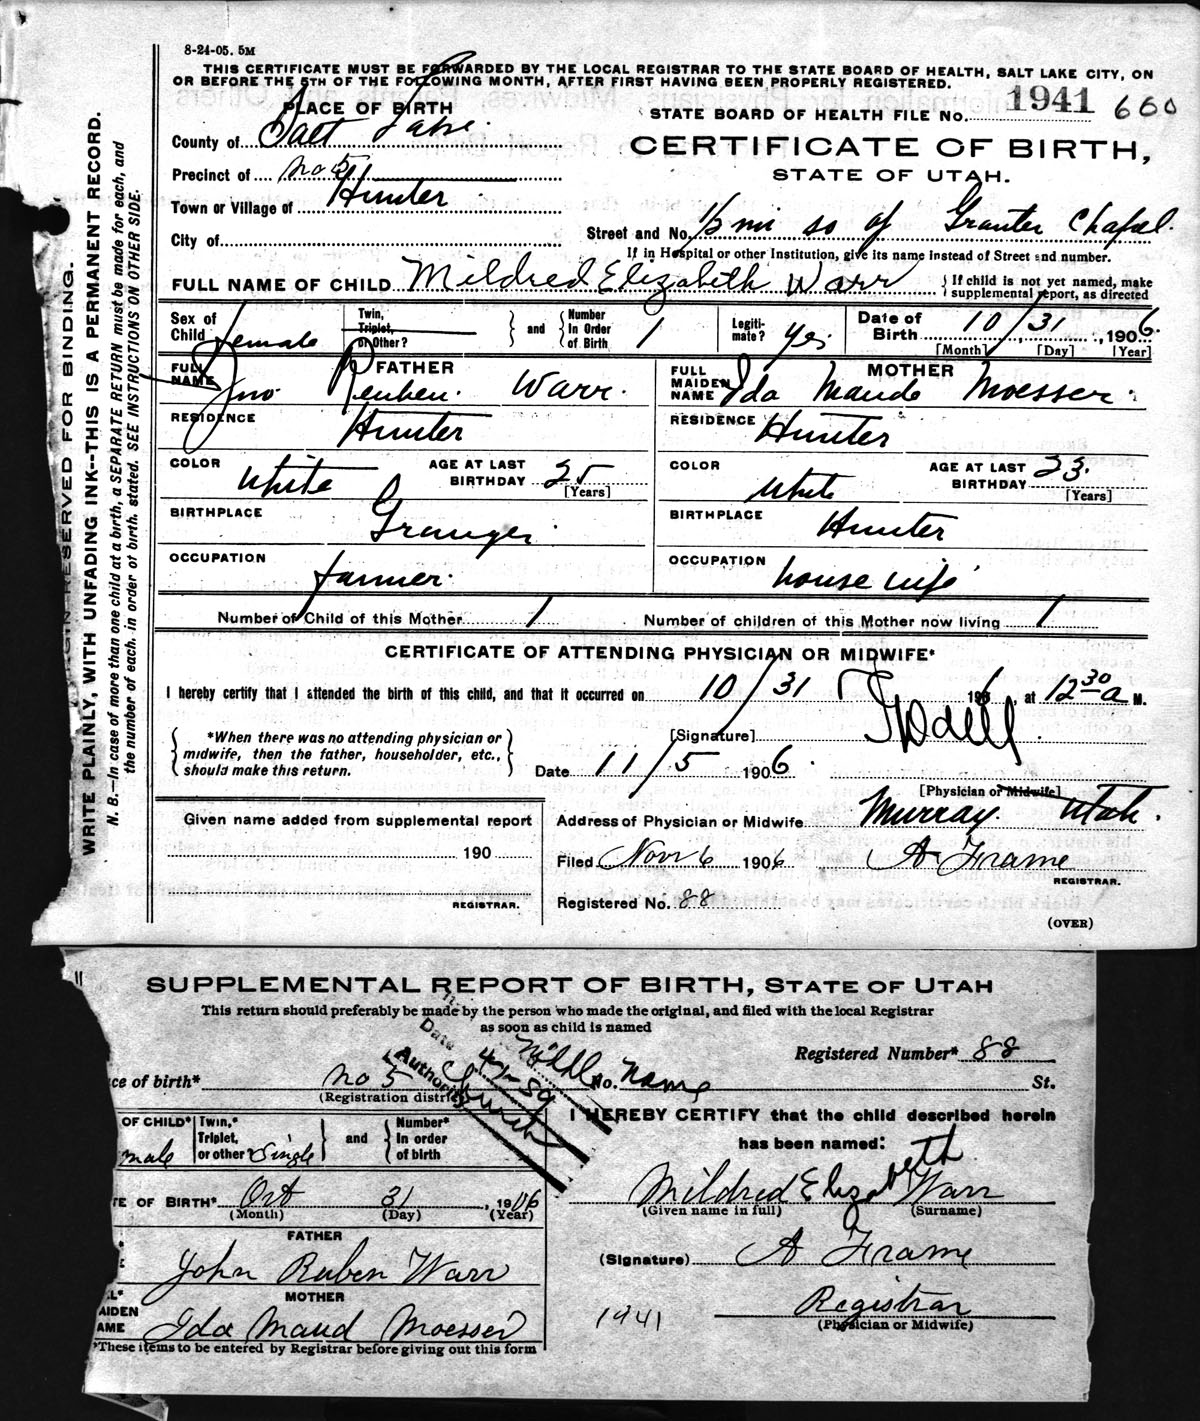 8-24-05. 5M
THIS CERTIFICATE MUST BE FORWARDED BY THE LOCAL REGISTRAR TO THE STATE BOARD OF HEALTH, SALT LAKE CITY, ON
OR BEFORE THE 5TH OF THE FOLLOWING MONTH, AFTER FIRST HAVING BEEN PROPERLY REGISTERED.
PLACE OF BIRTH
STATE BOARD OF HEALTH FILE No. 1941 660
County of Salt Lake
CERTIFICATE OF BIRTH,
STATE OF UTAH.
Precinct of No 5
Town or Village of Hunter
City of
Street and No. 1½ mi so of Granter Chapel
If in Hospital or other Institution, give its name instead of Street and number.
FULL NAME OF CHILD Mildred Elizabeth Warr { If child is not yet named, make supplemental report, as directed
Sex of Child Female Twin, Triplet, or Other? } and { Number In Order of Birth 1 Legitimate? Yes Date of Birth 10/31, 1906
[Month] [Day] [Year]
FULL NAME FATHER Jno Reuben Warr
FULL MAIDEN NAME MOTHER Ida Maude Moesser
RESIDENCE Hunter
RESIDENCE Hunter
COLOR White AGE AT LAST BIRTHDAY 25 [Years]
COLOR White AGE AT LAST BIRTHDAY 23 [Years]
BIRTHPLACE Granger
BIRTHPLACE Hunter
OCCUPATION farmer
OCCUPATION house wife
Number of Child of this Mother 1 Number of children of this Mother now living 1
CERTIFICATE OF ATTENDING PHYSICIAN OR MIDWIFE*
I hereby certify that I attended the birth of this child, and that it occurred on 10/31 1906, at 12 30 a M.
{ *When there was no attending physician or midwife, then the father, householder, etc., should make this return. }
[Signature]
Date 11/5 1906.
[Physician or Midwife]
Given name added from supplemental report
190
REGISTRAR.
Address of Physician or Midwife Murray. Utah.
Filed Nov 6 1906 A Frame
REGISTRAR.
Registered No. 88
(OVER)
MARGIN RESERVED FOR BINDING.
WRITE PLAINLY, WITH UNFADING INK--THIS IS A PERMANENT RECORD.
N. B.—In case of more than one child at a birth, a SEPARATE RETURN must be made for each, and
the number of each, in order of birth, stated. SEE INSTRUCTIONS ON OTHER SIDE.
SUPPLEMENTAL REPORT OF BIRTH, STATE OF UTAH
This return should preferably be made by the person who made the original, and filed with the local Registrar
as soon as child is named
Registered Number* 88
ce of birth* No 5 No. St.
(Registration district)
Middle Name
Date 4-1-59
Authority Church
OF CHILD* male Twin,* Triplet, or other Single } and { Number* In order of birth
I HEREBY CERTIFY that the child described herein
has been named:
TE OF BIRTH* Oct 31, 1906
(Month) (Day) (Year)
Mildred Elizabeth Warr
(Given name in full) (Surname)
FATHER
John Ruben Warr
(Signature) A Frame
MOTHER
AIDEN
AME Ida Maud Moesser
1941
Registrar
(Physician or Midwife)
*These items to be entered by Registrar before giving out this form